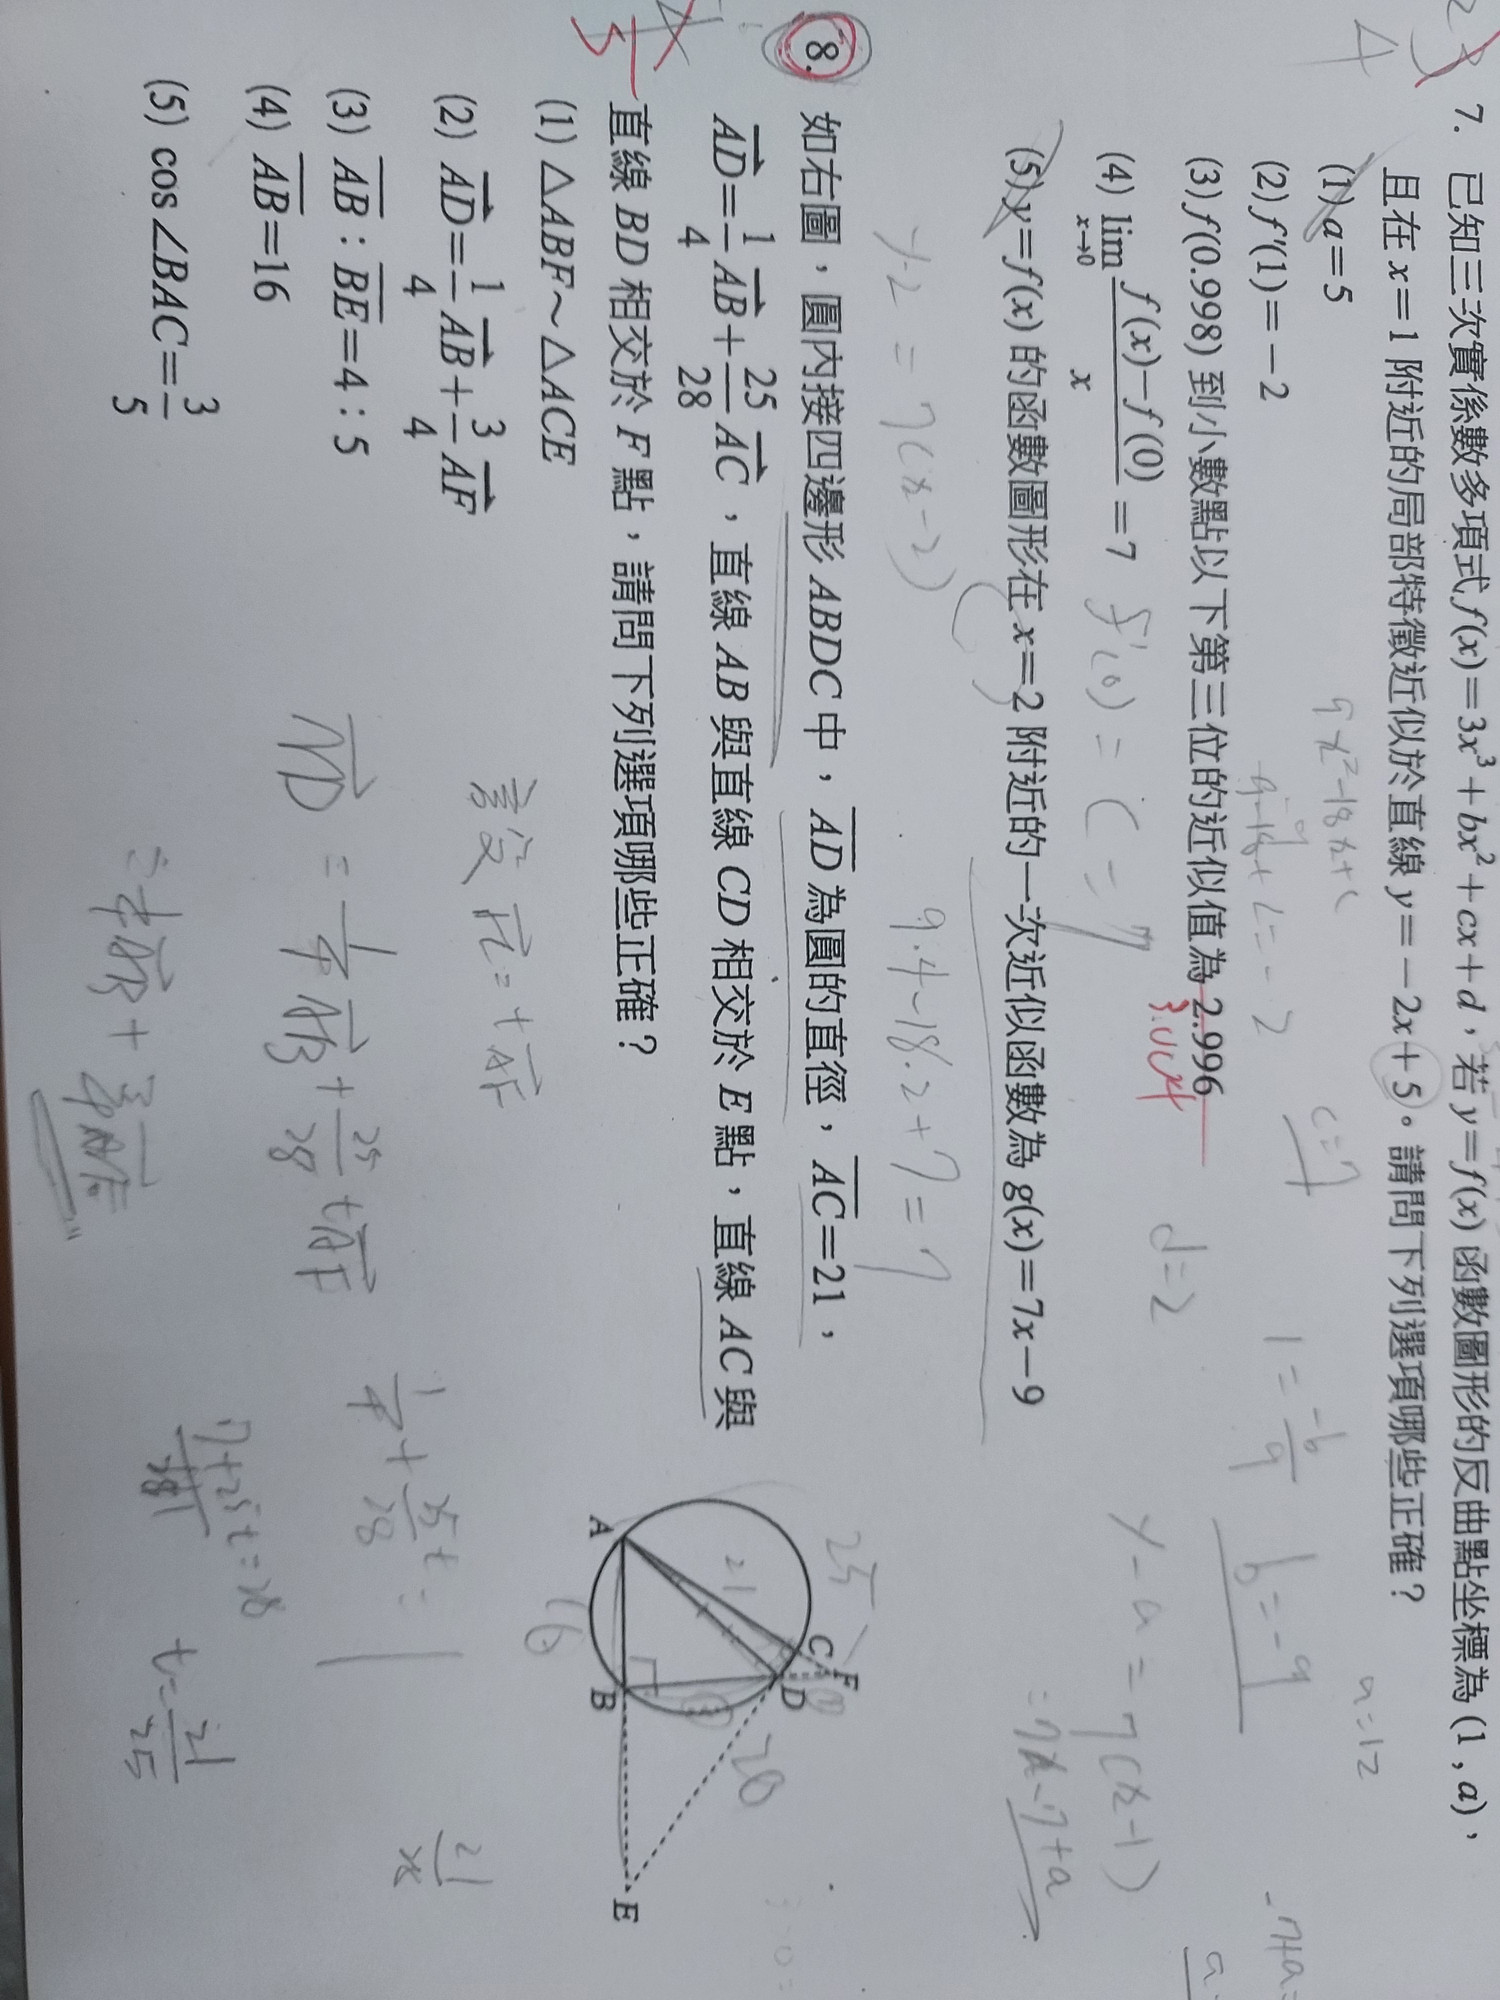 7. 已知三次實係數多項式 f(x)=3x³+bx²+cx+d，若 y=f(x) 函數圖形的反曲點坐標為 (1, a)，
且在 x=1 附近的局部特徵近似於直線 y=-2x+5。請問下列選項哪些正確？
(1) a=5
(2) f'(1)=-2
(3) f(0.998) 到小數點以下第三位的近似值為 2.996
(4) lim_{x→0} (f(x)-f(0))/x = 7
(5) y=f(x) 的函數圖形在 x=2 附近的一次近似函數為 g(x)=7x-9
9x²-18x+c
9-18+c=-2
c=7
a=12
d=2
1=-b/9
b=-9
f'(0)=c=7
y-a=7(x-1)
=7x-7+a
y-2=7(x-2)
9.4-18.2+7=7
8. 如右圖，圓內接四邊形 ABDC 中，AD 為圓的直徑，AC=21，
AD=1/4 AB+25/28 AC，直線 AB 與直線 CD 相交於 E 點，直線 AC 與
直線 BD 相交於 F 點，請問下列選項哪些正確？
(1) △ABF～△ACE
(2) AD=1/4 AB+3/4 AF
(3) AB：BE=4：5
(4) AB=16
(5) cos∠BAC=3/5
A
B
C
D
E
F
25
21
16
20
設 AC=tAF
AD=1/4 AB+25/28 tAF
1/4+25/28 t=1
7+25t=28
t=21/25
=1/4 AB+3/4 AF
21/x